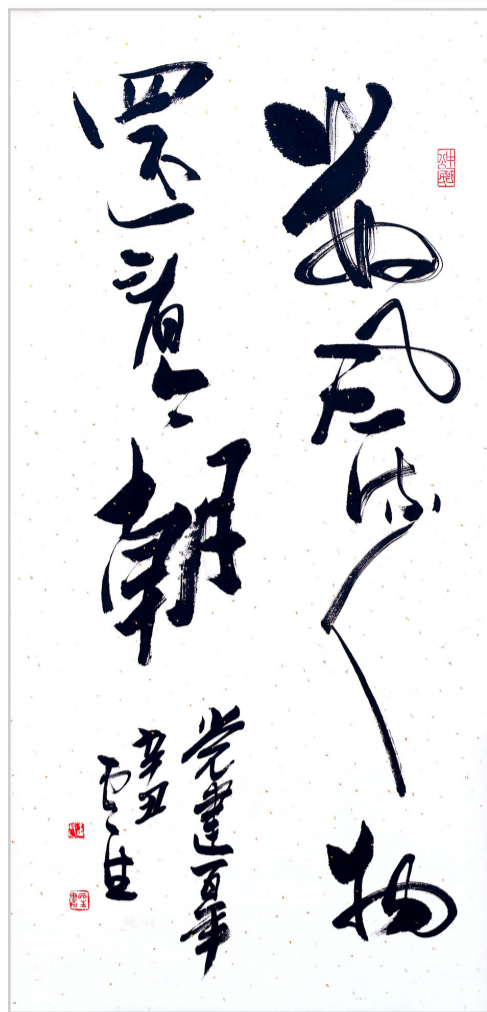 数风流人物
还看今朝
党建百年
辛丑